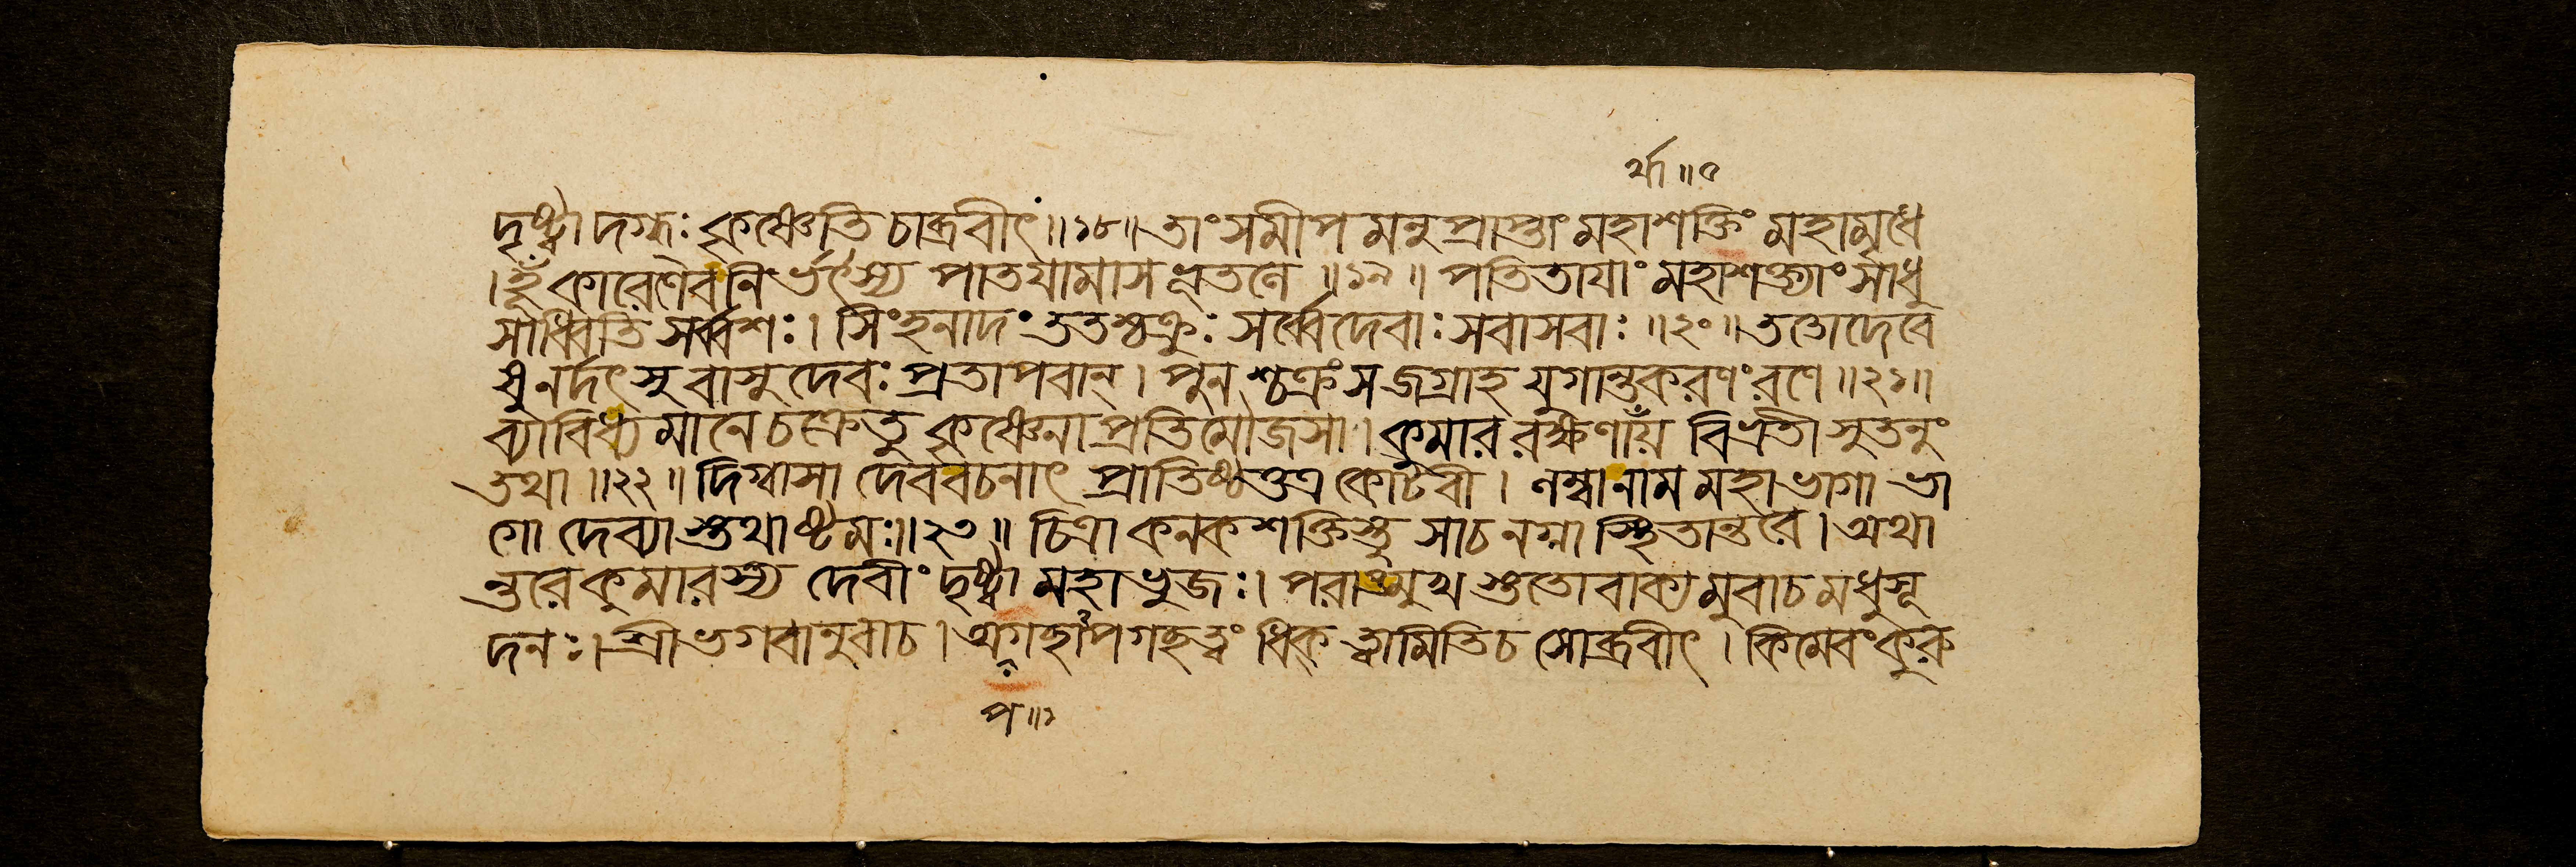 র্থা॥৫
দৃষ্ট্বা দগ্ধঃ কৃষ্ণেতি চাব্রবীৎ॥১৮॥ তাং সমীপ মনুপ্রাপ্তাং মহাশক্তিং মহামৃধে
।হূঁকারেণৈব নির্ভর্ৎস্য পাতয়ামাস ভূতলে ॥১৯॥ পতিতায়াং মহাশক্ত্যাং সাধু
সাধ্বিতি সর্ব্বশঃ। সিংহনাদং ততশ্চক্রুঃ সর্ব্বেদেবাঃ সবাসবাঃ ॥২০॥ ততোদেবে
ষুনর্দৎসু বাসুদেবঃ প্রতাপবান্। পুনশ্চক্রং সজগ্রাহ যুগান্তকরণং রণে ॥২১॥
ব্যাবিধ্যমানে চক্রেতু কৃষ্ণেনাপ্রতিমৌজসা। কুমার রক্ষণার্থায় বিভ্রতী সুতনুং
তথা ॥২২॥ দিগ্বাসা দেববচনাৎ প্রাতিষ্ঠত্তত্র কোটবী। লম্বানাম মহাভাগা ভা
গো দেব্যাস্তথাষ্টমঃ॥২৩॥ চিত্রা কনকশক্তিস্তু সাচ নগ্না স্থিতান্তরে। অথা
ন্তরেকুমারস্য দেবীং দৃষ্ট্বা মহাভুজঃ। পরাঙ্মুখ স্ততোবাক্য মুবাচমধুসূ
দনঃ। শ্রীভগবানুবাচ। অপগচ্ছাপগচ্ছত্বং ধিক্ ত্বামিতিচ সোব্রবীৎ। কিমেবংকুরু
প॥১